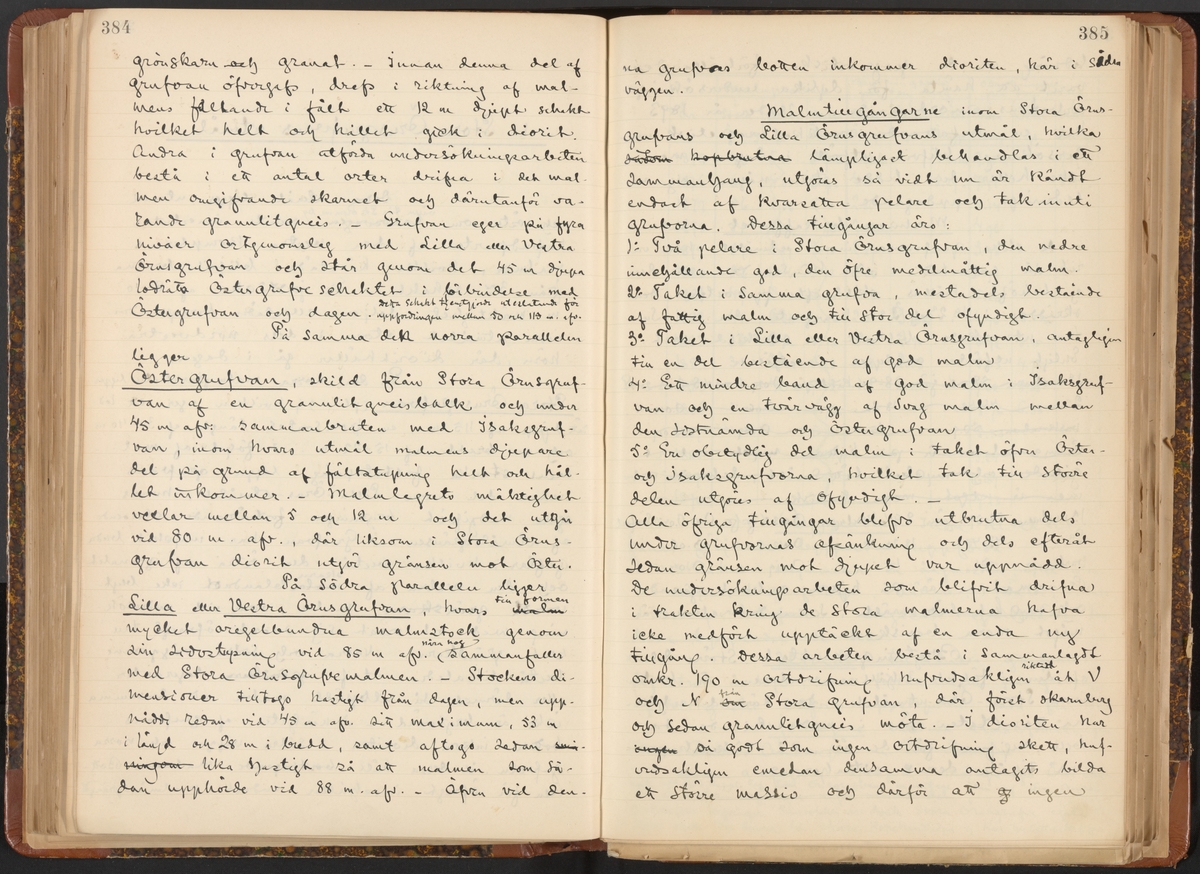 384
grönskarn och granat. – Innan denna del af
grufvan öfvergafs, drefs i riktning af mal-
mens fallhande i fält ett 12 m djupt schakt
hvilket helt och hållet gick i diorit.
Andra i grufvan utförda undersökningsarbeten
bestå i ett antal orter drifna i det mal-
men omgifvande skarnet och därutanför va-
rande granulitgneis. – Grufvan eger på fyra
nivåer ortgenomslag med Lilla eller Vestra
Örnsgrufvan och står genom det 45 m djupa
lodräta Östergrufveschaktet i förbindelse med
Östergrufvan och dagen. detta schakt tjenstgjorde uteslutande för
uppfordringen mellan 80 och 113 m. afv.
På samma den norra parallelen
ligger
Östergrufvan, skild från Stora Örnsgruf-
van af en granulitgneisbalk och under
45 m afv. sammanbruten med Isaksgruf-
van, inom hvars utmål malmens djupare
del på grund af fältstupning helt och hål-
let inkommer. – Malmlagrets mäktighet
vexlar mellan 5 och 12 m och det utgår
vid 80 m afv., där liksom i Stora Örns-
grufvan diorit utgör gränsen mot öster.
På södra parallelen ligger
Lilla eller Vestra Örnsgrufvan hvars till formen malm
mycket oregelbundna malmstock genom
sin sidostupning vid 85 m afv. nära nog sammanfaller
med Stora Örnsgrufvemalmen. – Stockens di-
mensioner tilltogo hastigt från dagen, men upp-
nådde redan vid 45 m afv. sitt maximum, 53 m
i längd och 28 m i bredd, samt aftogo sedan
lika hastigt så att malmen som så-
dan upphörde vid 88 m. afv. – Äfven vid den-
385
na grufvas botten inkommer dioriten, här i södra
väggen.
Malmtillgångarne inom Stora Örns-
grufvans och Lilla Örnsgrufvans utmål, hvilka
såsom hopbrutna lämpligast behandlas i ett
sammanhang, utgöras så vidt nu är kändt
endast af kvarsatta pelare och tak inuti
grufvorna. Dessa tillgångar äro:
1:o Två pelare i Stora Örnsgrufvan, den nedre
innehållande god, den öfre medelmåttig malm.
2:o Taket i samma grufva, mestadels bestående
af fattig malm och till stor del ofyndigt.
3:o Taket i Lilla eller Vestra Örnsgrufvan, antagligen
till en del bestående af god malm
4:o Ett mindre band af god malm i Isaksgruf-
van och en tvärvägg af svag malm mellan
den sistnämda och Östergrufvan
5:o En obetydlig del malm i taket öfver Öster-
och Isaksgrufvorna, hvilket tak till större
delen utgöres af ofyndigt. –
Alla öfriga tillgångar blefvo utbrutna dels
under grufvornas afsänkning och dels efteråt
sedan gränsen mot djupet var uppnådd.
De undersökningsarbeten som blifvit drifna
i trakten kring de stora malmerna hafva
icke medfört upptäckt af en enda ny
tillgång. Dessa arbeten bestå i sammanlagdt
omkr. 190 m ortdrifning hufvudsakligen riktadt åt V
och N från Stora grufvan, där först skarnberg
och sedan granulitgneis möta. – I dioriten har
ingen så godt som ingen ortdrifning skett, huf-
vudsakligen emedan densamma antagits bilda
ett större massiv och därför att ingen